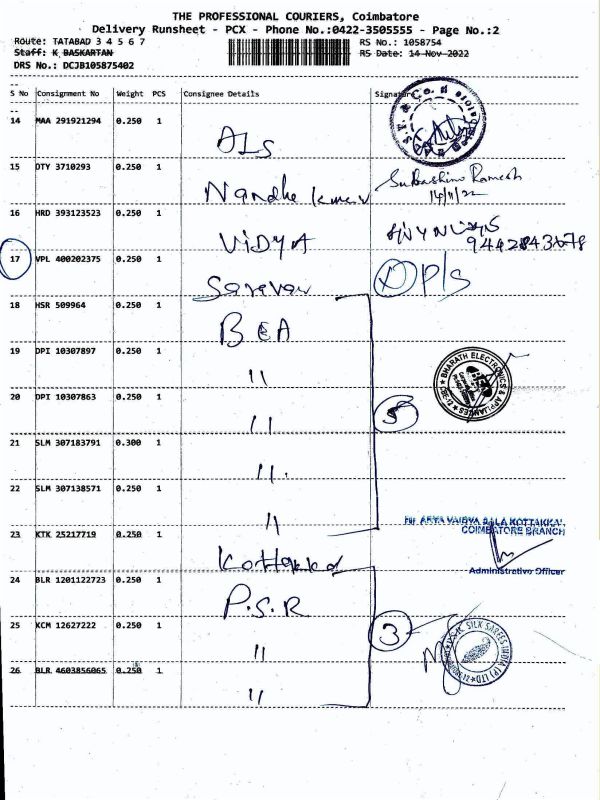 THE PROFESSIONAL COURIERS, Coimbatore
Delivery Runsheet - PCX - Phone No.:0422-3505555 - Page No.:2
Route: TATABAD 3 4 5 6 7
RS No.: 1058754
Staff: K BASKARTAN
RS Date: 14 Nov 2022
DRS No.: DCJB105875402
S No Consignment No Weight PCS Consignee Details Signature
14 MAA 291921294 0.250 1 ALS
15 DTY 3710293 0.250 1 Nandha kumar Subashini Ramesh
14/11/22
16 HRD 393123523 0.250 1 VIDYA
9442843678
17 VPL 400202375 0.250 1 Saravan D P/s
18 HSR 509964 0.250 1 BEA
19 DPI 10307897 0.250 1 "
BHARATH ELECTRONICS & APPLIANCES
20 DPI 10307863 0.250 1 " 5
21 SLM 307183791 0.300 1 "
22 SLM 307138571 0.250 1 "
For ARYA VAIDYA SALA KOTTAKKAL,
COIMBATORE BRANCH
23 KTK 25217719 0.250 1 Kottakkal
Administrative Officer
24 BLR 1201122723 0.250 1 P.S.R
25 KCM 12627222 0.250 1 " 3
SILK SAREES INDIA (P) LTD
26 BLR 4603856065 0.250 1 "